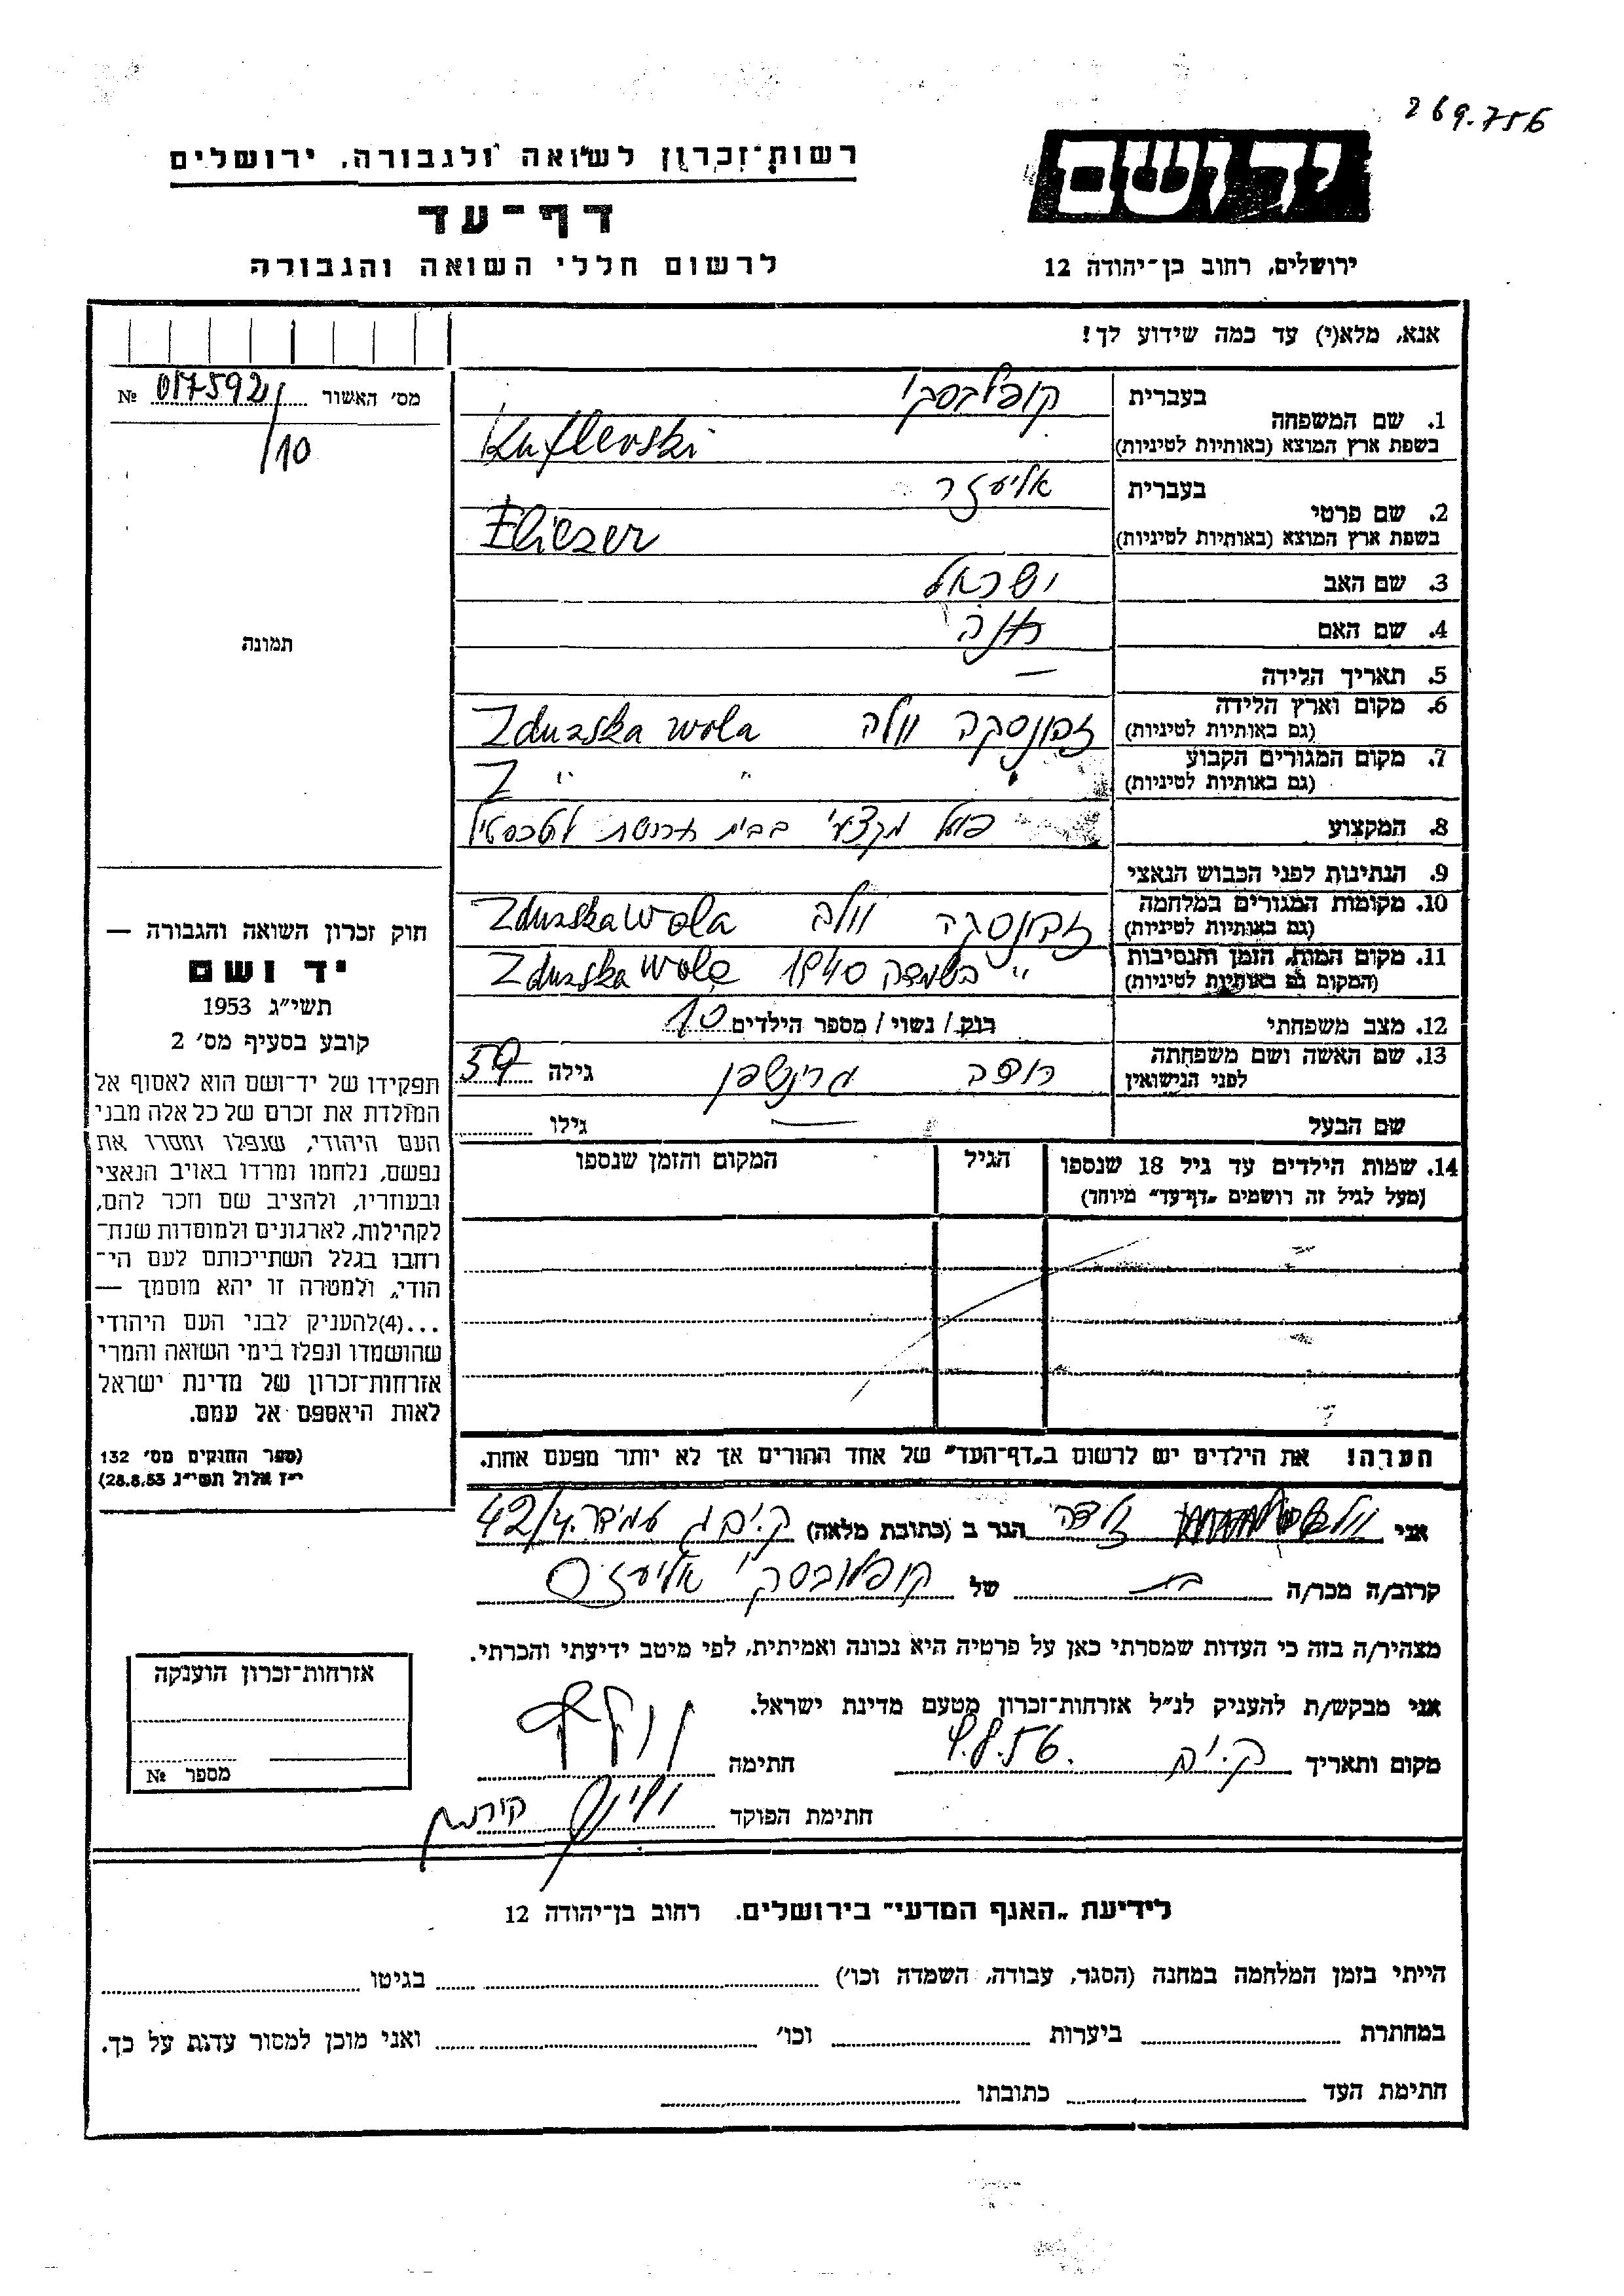 269.756
יד ושם
רשות־זכרון לשואה ולגבורה, ירושלים
דף־עד
לרשום חללי השואה והגבורה
ירושלים, רחוב בן־יהודה 12
אנא, מלא(י) עד כמה שידוע לך!
מס׳ האשור 017592 №
/10
תמונה
1. שם המשפחה
בעברית קופלבסקי
בשפת ארץ המוצא (באותיות לטיניות) Kuflevski
2. שם פרטי
בעברית אליעזר
בשפת ארץ המוצא (באותיות לטיניות) Eliezer
3. שם האב ישראל
4. שם האם חנה
5. תאריך הלידה —
6. מקום וארץ הלידה
(גם באותיות לטיניות) זדונסקה וולה Zdunska Wola
7. מקום המגורים הקבוע
(גם באותיות לטיניות) " " Z
8. המקצוע פועל מקצעי בבית חרושת לטכסטיל
9. הנתינות לפני הכבוש הנאצי
10. מקומות המגורים במלחמה
(גם באותיות לטיניות) זדונסקה וולה Zdunska Wola
11. מקום המות, הזמן והנסיבות
(המקום גם באותיות לטיניות) " בהשמדה 1940 Zdunska Wola
12. מצב משפחתי רוק / נשוי / מספר הילדים 10
13. שם האשה ושם משפחתה
לפני הנישואין גרינשפן גילה 59
שם הבעל — גילו
14. שמות הילדים עד גיל 18 שנספו
(מעל לגיל זה רושמים „דף־עד״ מיוחד)
הגיל
המקום והזמן שנספו
הערה! את הילדים יש לרשום ב„דף־העד״ של אחד ההורים אך לא יותר מפעם אחת.
חוק זכרון השואה והגבורה —
יד ושם
תשי״ג 1953
קובע בסעיף מס׳ 2
תפקידו של יד־ושם הוא לאסוף אל
המולדת את זכרם של כל אלה מבני
העם היהודי, שנפלו ומסרו את
נפשם, נלחמו ומרדו באויב הנאצי
ובעוזריו, ולהציב שם וזכר להם,
לקהילות, לארגונים ולמוסדות שנח־
רבו בגלל השתייכותם לעם הי־
הודי, ולמטרה זו יהא מוסמך —
...(4)להעניק לבני העם היהודי
שהושמדו ונפלו בימי השואה והמרי
אזרחות־זכרון של מדינת ישראל
לאות היאספם אל עמם.
(ספר החוקים מס׳ 132
י״ז אלול תשי״ג 28.8.53)
אני הגר ב (כתובת מלאה) ק.ים ג עמידר 42/4
קרוב/ה מכר/ה בת של קופלובסקי אליעזר
מצהיר/ה בזה כי העדות שמסרתי כאן על פרטיה היא נכונה ואמיתית, לפי מיטב ידיעתי והכרתי.
אני מבקש/ת להעניק לנ״ל אזרחות־זכרון מטעם מדינת ישראל.
מקום ותאריך ק.ים 9.8.56 חתימה
חתימת הפוקד
אזרחות־זכרון הוענקה
מספר №
לידיעת „האגף המדעי״ בירושלים. רחוב בן־יהודה 12
הייתי בזמן המלחמה במחנה (הסגר, עבודה, השמדה וכו׳) בגיטו
במחתרת ביערות וכו׳ ואני מוכן למסור עדות על כך.
חתימת העד כתובתו